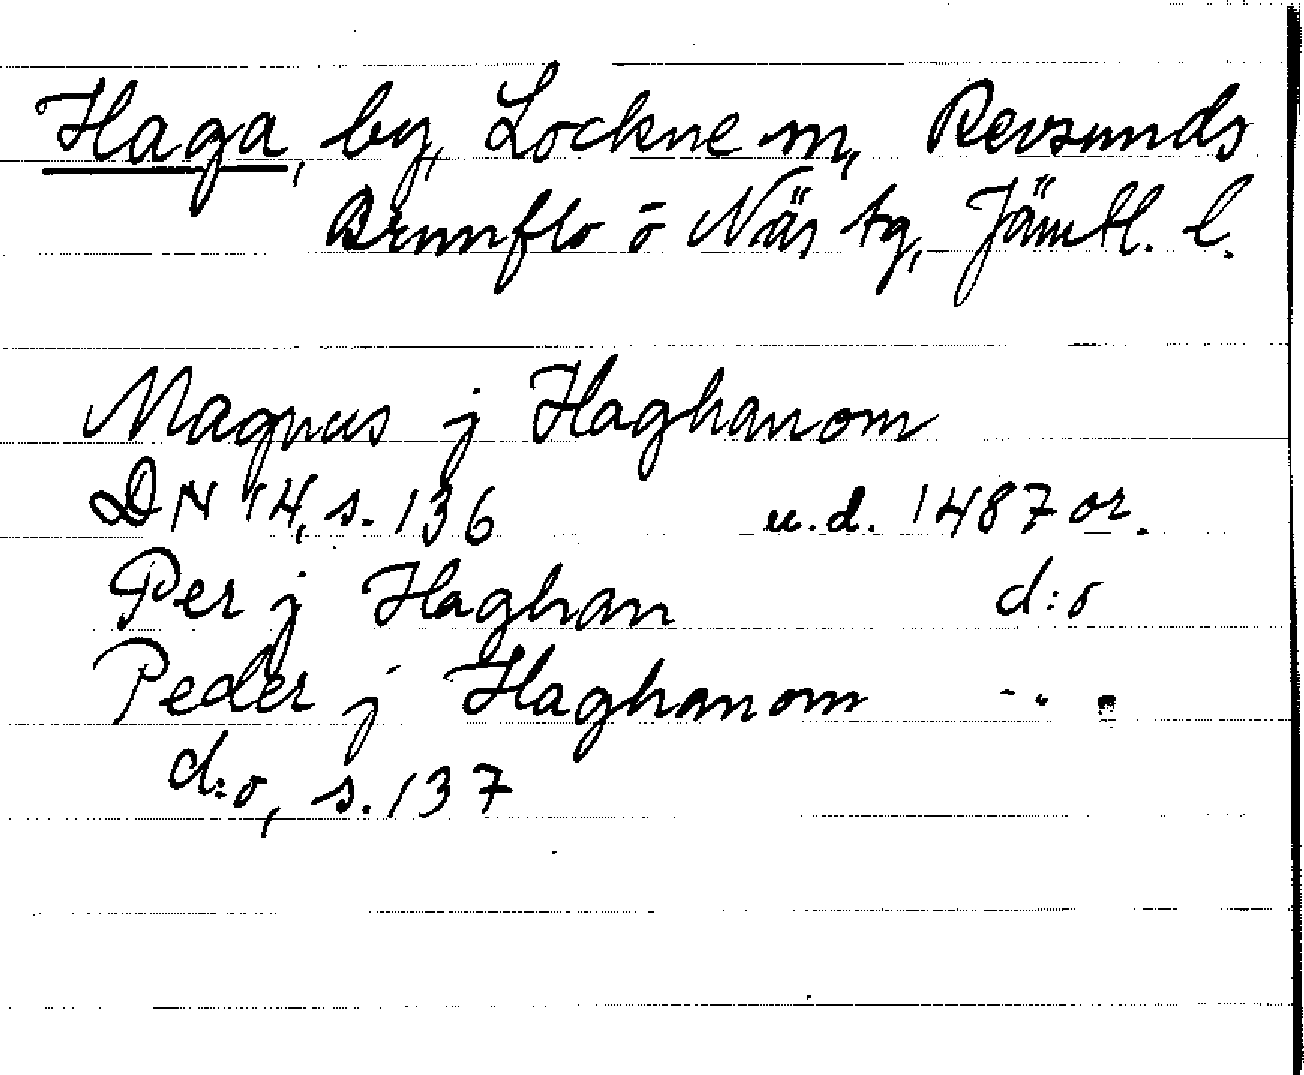 Haga, by, Lockne sn, Revsunds
Brunflo o Näs tg, Jämtl. l.
Magnus j Haghanom
DN 14, s. 136 u.d. 1487 or.
Per j Haghan d:o
Peder j Haghanom -"-
d:o, s. 137